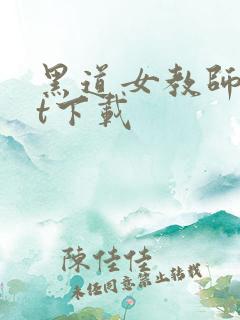 黑道女教師
t下載
陳佳佳
未經同意禁止轉載